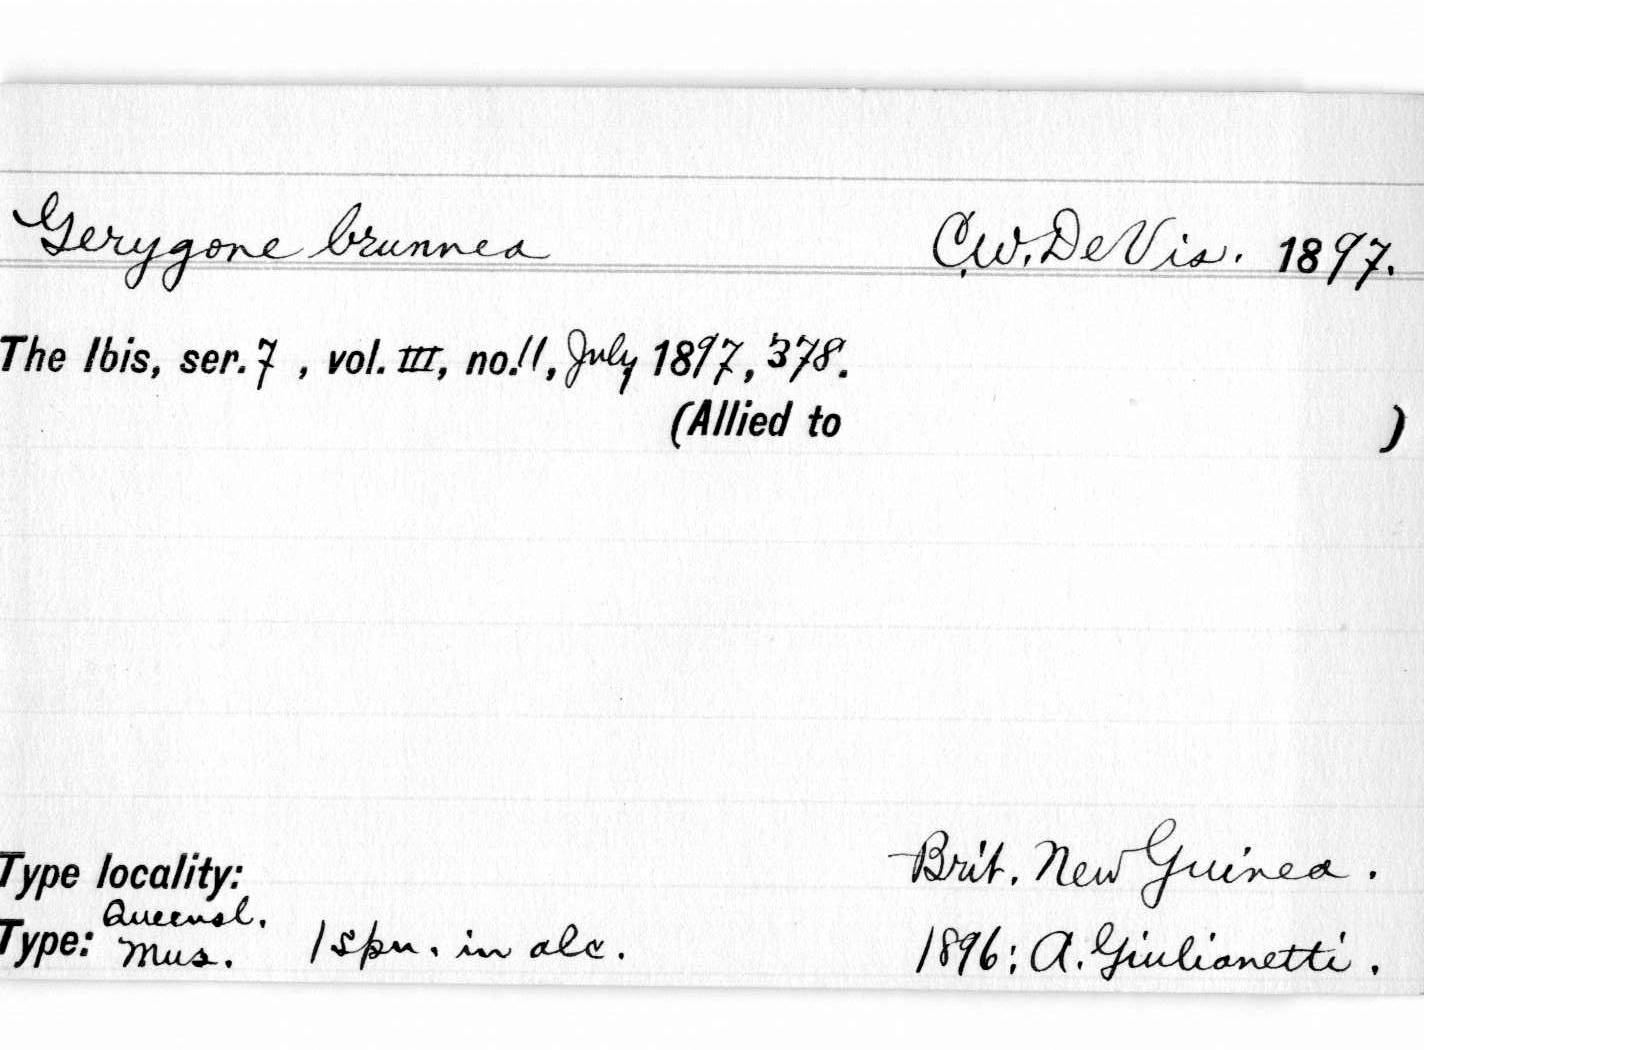 Gerygone brunnea C.W. De Vis. 1897.
The Ibis, ser. 7, vol. III, no. 11, July 1897, 378.
(Allied to )
Type locality: Brit. New Guinea.
Queensl.
Type: Mus. 1 spn. in alc. 1896: A. Giulianetti.